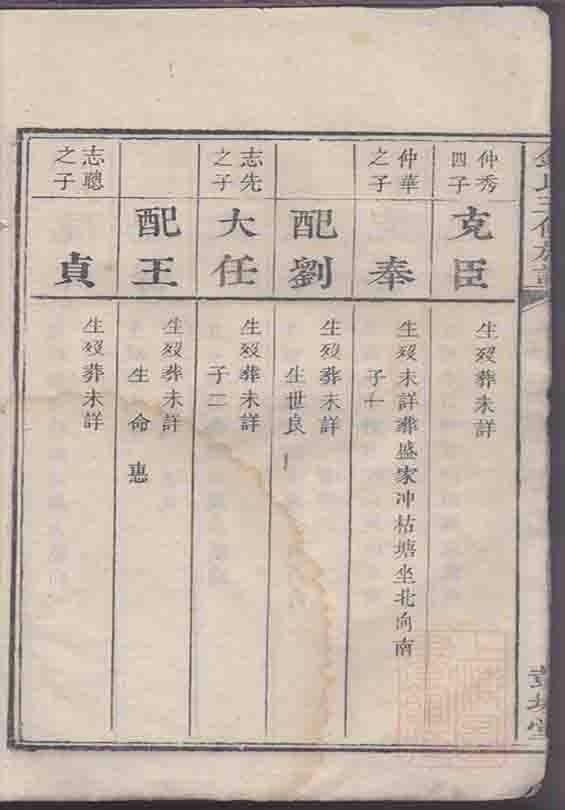 氏三修族譜
彭城堂
仲秀
四子
克臣
生歿葬未詳
仲華
之子
奉
生歿未詳葬盛家冲枯塘坐北向南
子十
配劉
生歿葬未詳
生世良
志先
之子
大任
生歿葬未詳
子二
配王
生歿葬未詳
生命惠
志聰
之子
貞
生歿葬未詳